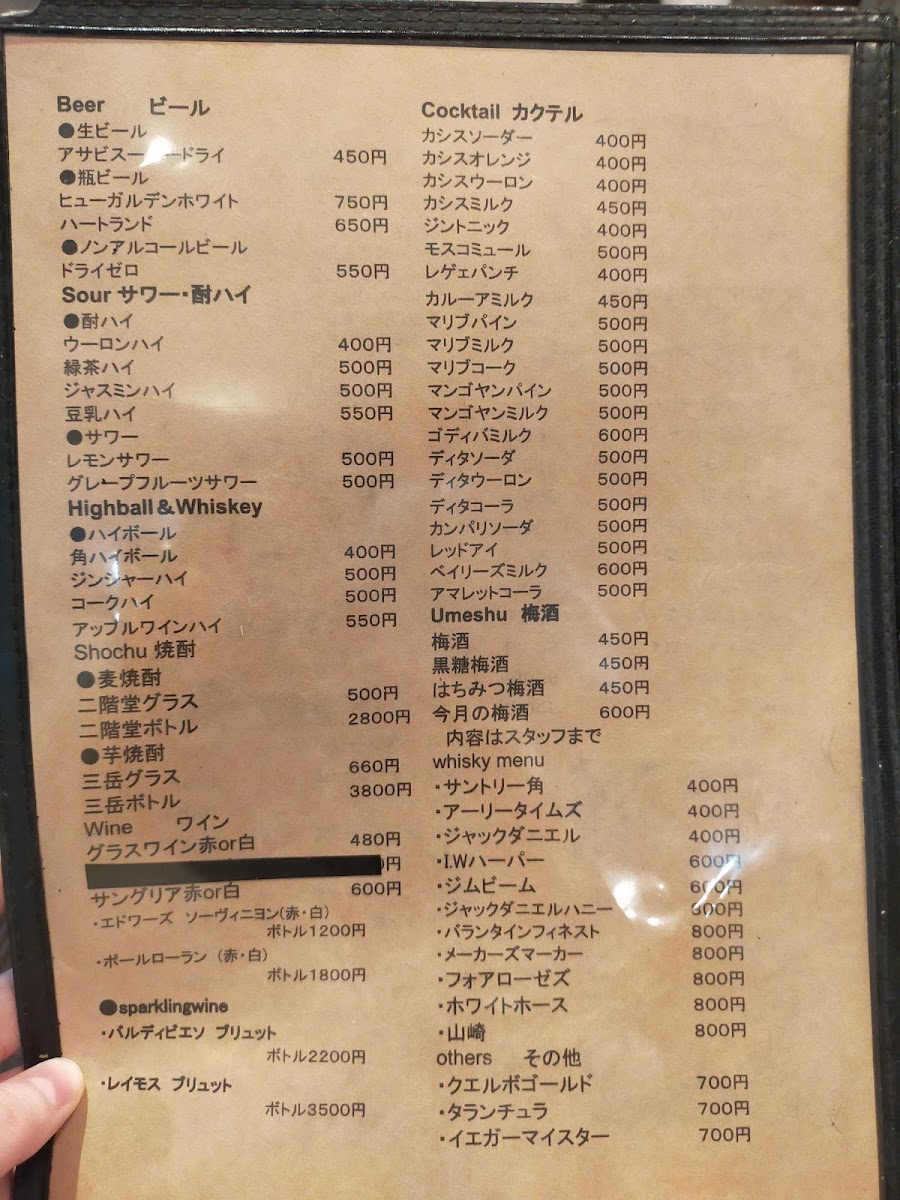 Beer ビール
●生ビール
アサビスーパードライ 450円
●瓶ビール
ヒューガルデンホワイト 750円
ハートランド 650円
●ノンアルコールビール
ドライゼロ 550円
Sour サワー・酎ハイ
●酎ハイ
ウーロンハイ 400円
緑茶ハイ 500円
ジャスミンハイ 500円
豆乳ハイ 550円
●サワー
レモンサワー 500円
グレープフルーツサワー 500円
Highball＆Whiskey
●ハイボール
角ハイボール 400円
ジンジャーハイ 500円
コークハイ 500円
アップルワインハイ 550円
Shochu 焼酎
●麦焼酎
二階堂グラス 500円
二階堂ボトル 2800円
●芋焼酎
三岳グラス 660円
三岳ボトル 3800円
Wine ワイン
グラスワイン赤or白 480円
円
サングリア赤or白 600円
・エドワーズ ソーヴィニヨン(赤・白)
ボトル1200円
・ポールローラン (赤・白)
ボトル1800円
●sparklingwine
・バルディビエソ ブリュット
ボトル2200円
・レイモス ブリュット
ボトル3500円
Cocktail カクテル
カシスソーダー 400円
カシスオレンジ 400円
カシスウーロン 400円
カシスミルク 450円
ジントニック 400円
モスコミュール 500円
レゲェパンチ 400円
カルーアミルク 450円
マリブパイン 500円
マリブミルク 500円
マリブコーク 500円
マンゴヤンパイン 500円
マンゴヤンミルク 500円
ゴディバミルク 600円
ディタソーダ 500円
ディタウーロン 500円
ディタコーラ 500円
カンパリソーダ 500円
レッドアイ 500円
ベイリーズミルク 600円
アマレットコーラ 500円
Umeshu 梅酒
梅酒 450円
黒糖梅酒 450円
はちみつ梅酒 450円
今月の梅酒 600円
内容はスタッフまで
whisky menu
・サントリー角 400円
・アーリータイムズ 400円
・ジャックダニエル 400円
・I.Wハーパー 600円
・ジムビーム 600円
・ジャックダニエルハニー
・バランタインフィネスト 800円
・メーカーズマーカー 800円
・フォアローゼズ 800円
・ホワイトホース 800円
・山崎 800円
others その他
・クエルボゴールド 700円
・タランチュラ 700円
・イエガーマイスター 700円